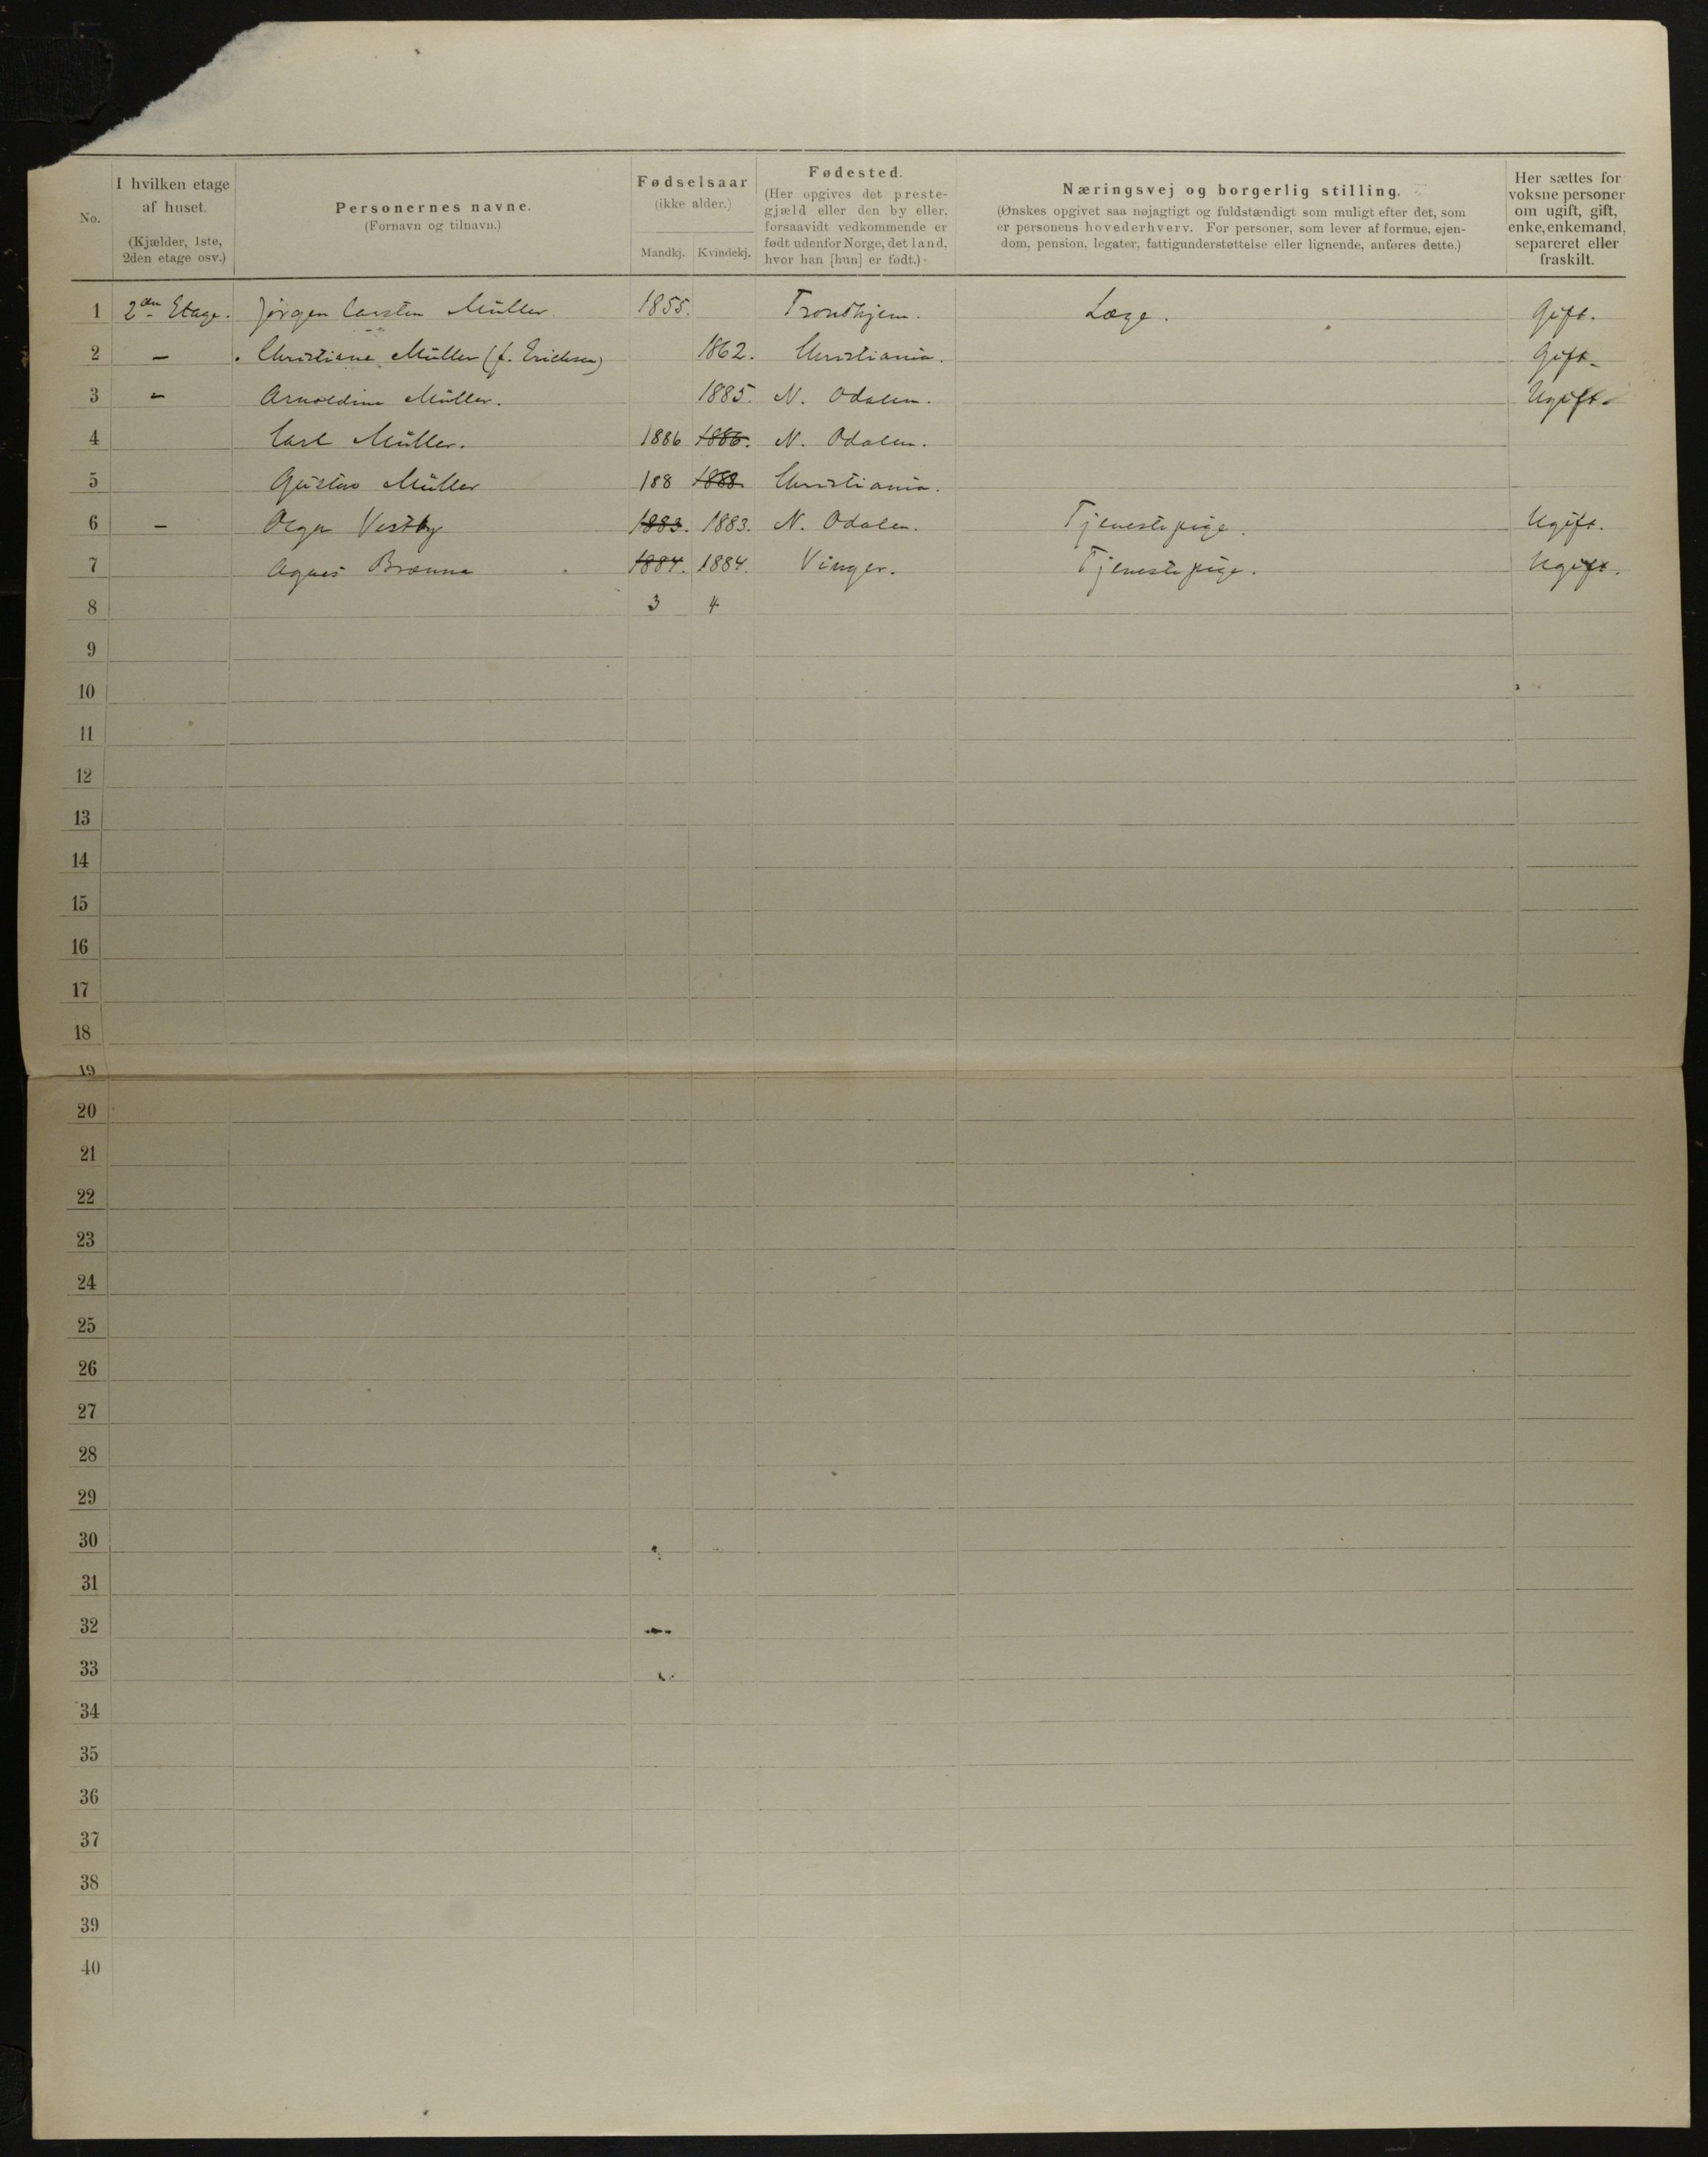 No.
I hvilken etage af huset. (Kjælder, 1ste, 2den etage osv.)
Personernes navne. (Fornavn og tilnavn.)
Fødselsaar (ikke alder.) Mandkj. Kvindekj.
Fødested. (Her opgives det prestegjæld eller den by eller, forsaavidt vedkommende er født udenfor Norge, det land, hvor han [hun] er født.)
Næringsvej og borgerlig stilling. (Ønskes opgivet saa nøjagtigt og fuldstændigt som muligt efter det, som er personens hovederhverv. For personer, som lever af formue, ejendom, pension, legater, fattigunderstøttelse eller lignende, anføres dette.)
Her sættes for voksne personer om ugift, gift, enke, enkemand, separeret eller fraskilt.
1 2den Etage. Jörgen Carsten Müller 1855. Trondhjem. Læge. Gift.
2 – Christiane Müller (f. Erichsen) 1862. Christiania. Gift.
3 – Arnoldine Müller. 1885. N. Odalen. Ugift.
4 Carl Müller. 1886 1886. N. Odalen.
5 Gustav Müller 188 1888. Christiania.
6 – Olga Vestby 1883. 1883. N. Odalen. Tjenestepige. Ugift.
7 Agnes Brænna 1884. 1884. Vinger. Tjenestepige. Ugift.
8 3 4
9
10
11
12
13
14
15
16
17
18
19
20
21
22
23
24
25
26
27
28
29
30
31
32
33
34
35
36
37
38
39
40